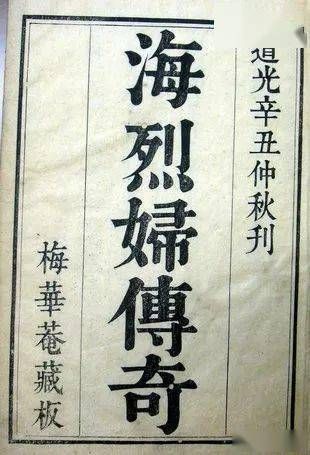 道光辛丑仲秋刊
海烈婦傳奇
梅華菴藏板